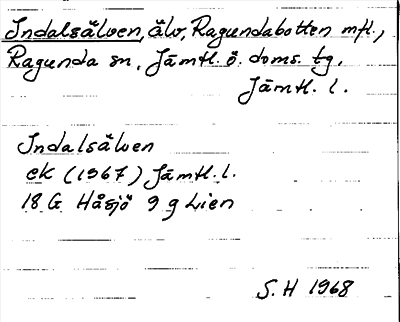 Indalsälven, älv, Ragundabotten mfl.,
Ragunda sn, Jämtl. ö. doms. tg,
Jämtl. l.
Indalsälven
ek (1967) Jämtl. l.
18 G Håsjö 9 g Lien
S. H 1968